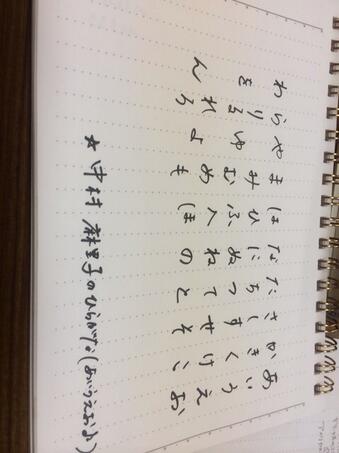 あいうえお
かきくけこ
さしすせそ
たちつてと
なにぬねの
はひふへほ
まみむめも
やゆよ
らりるれろ
わをん
★中村麻里子のひらがな(あいうえお♪)